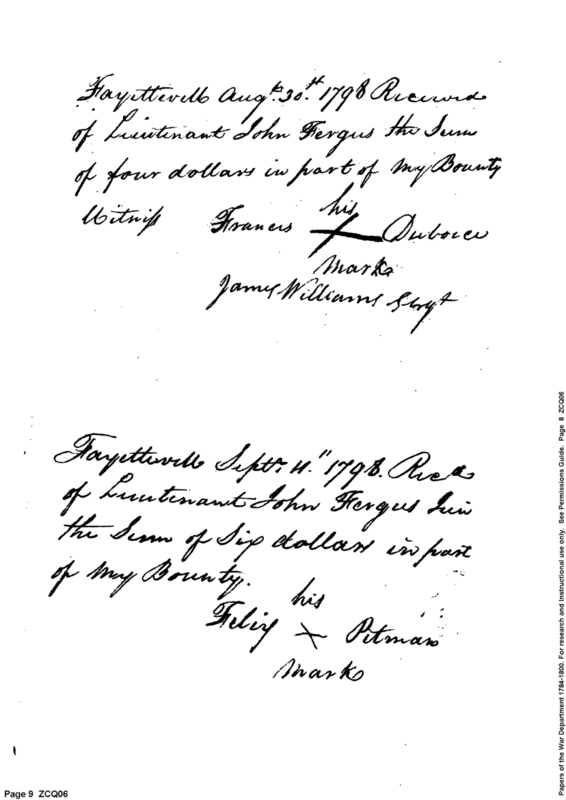 Fayetteville Augt. 30th. 1798 Received
of Lieutenant John Fergus the Sum
of four dollars in part of My Bounty
Witness Francis his X Duboice
mark
James Williams Sergt
Fayetteville Septr. 4.th 1798. Recd
of Lieutenant John Fergus Jun
the Sum of Six dollars in part
of My Bounty.
his
Felix X Pitman
mark
Page 9 ZCQ06
Papers of the War Department 1784-1800. For research and instructional use only. See Permissions Guide. Page 8 ZCQ06